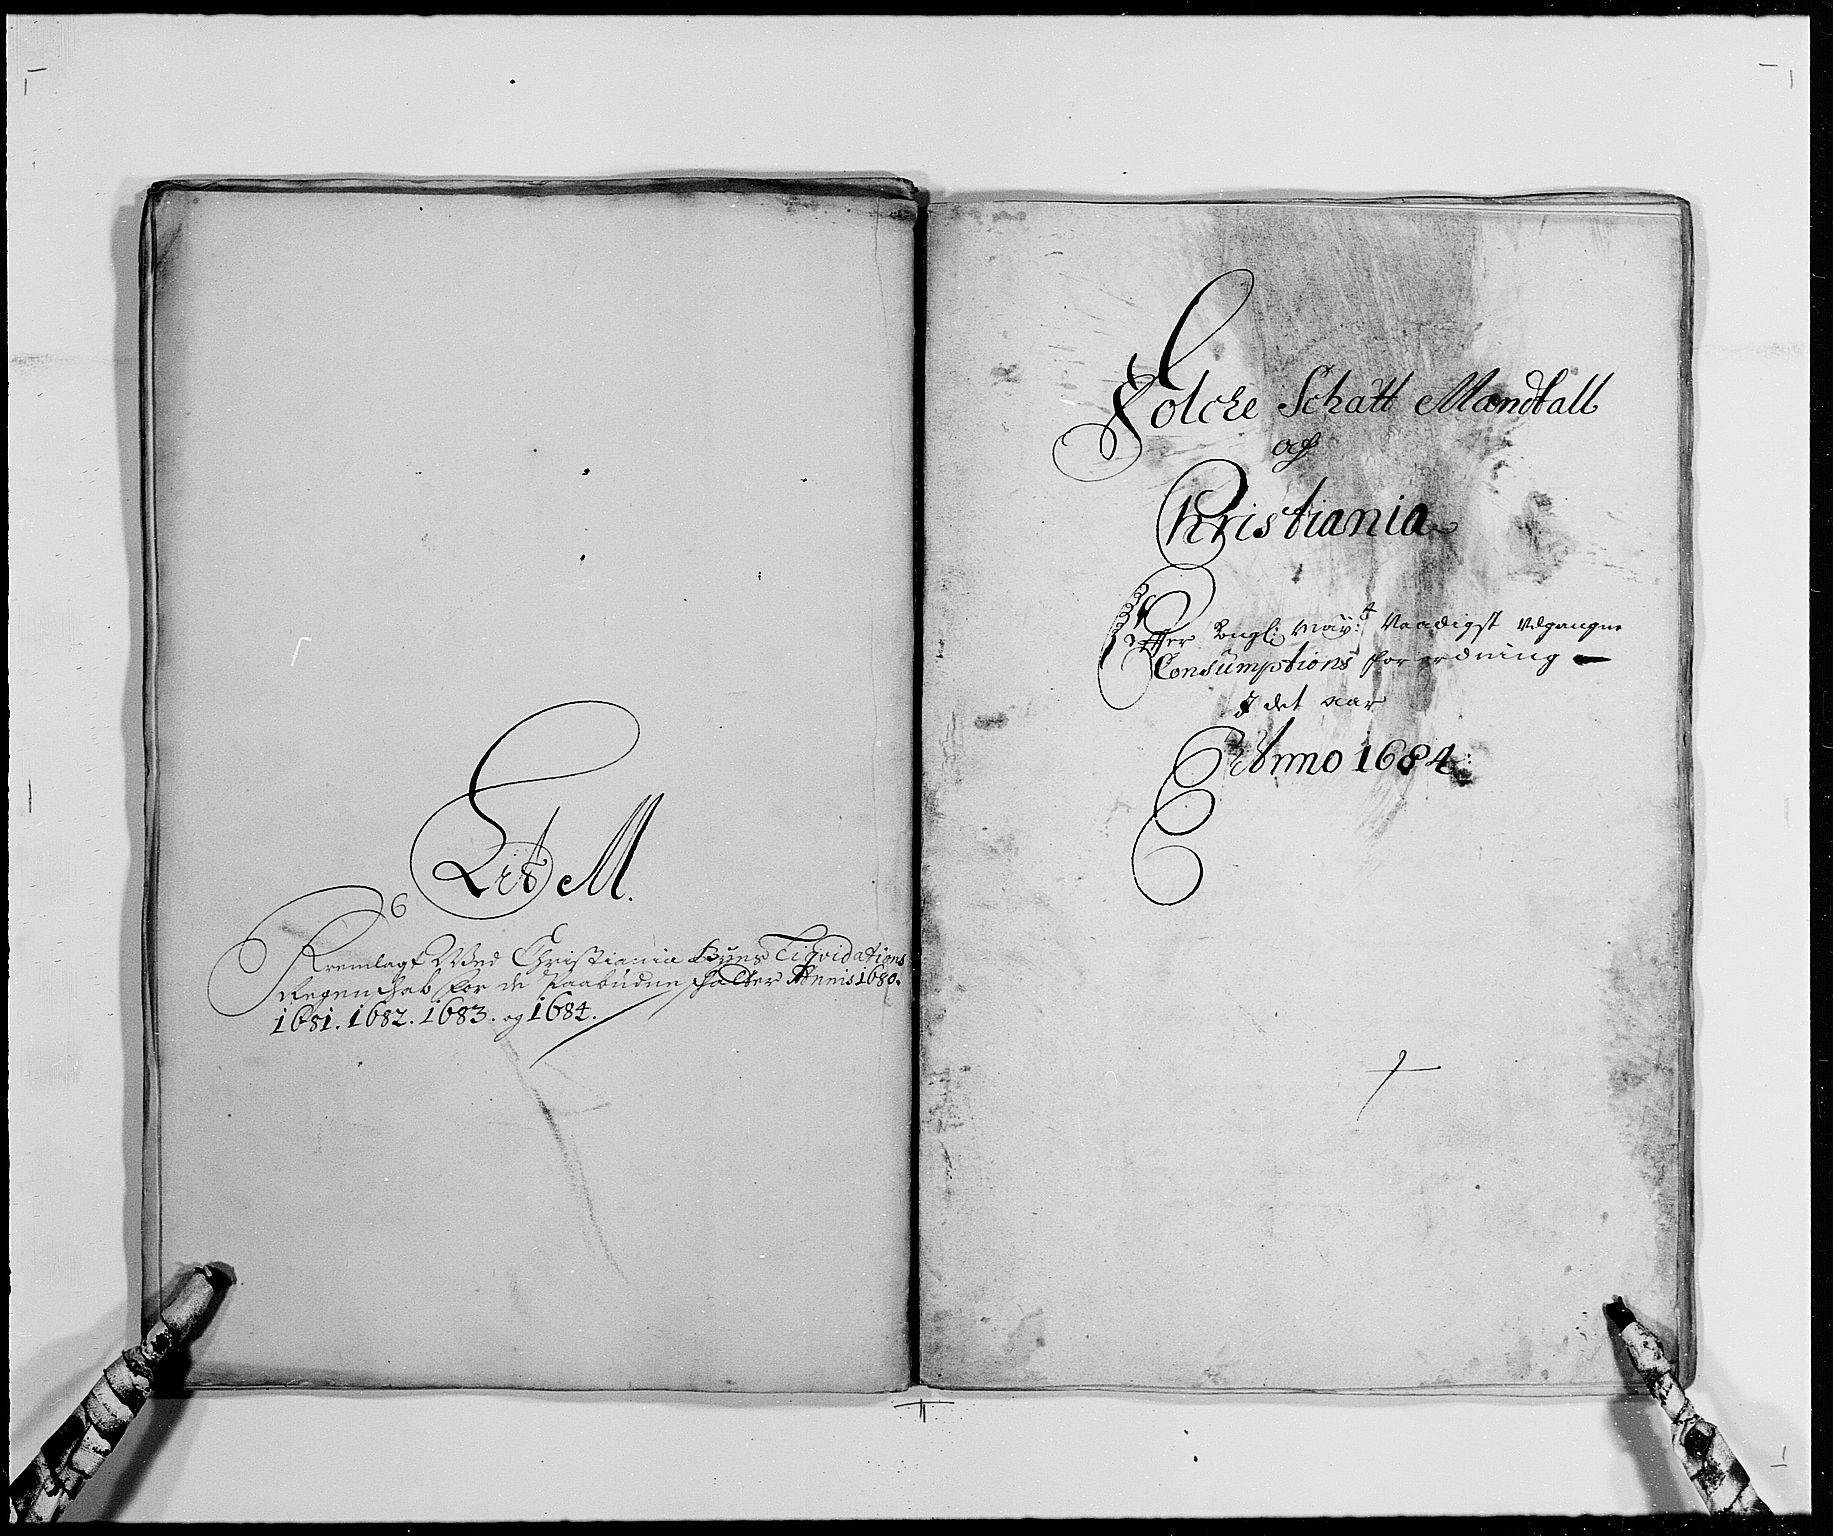 Lit M.
Fremlagt Wed Christiania Byes Liqvidations
Regenschab for de Paabudne schatter Annis 1680.
1681. 1682. 1683. og 1684.
Folche Schatt Mandtall
af
Christiania
Effter Kongl: May: Naadigst Udgangne
Consumptions forordning
J det aar
Anno 1684